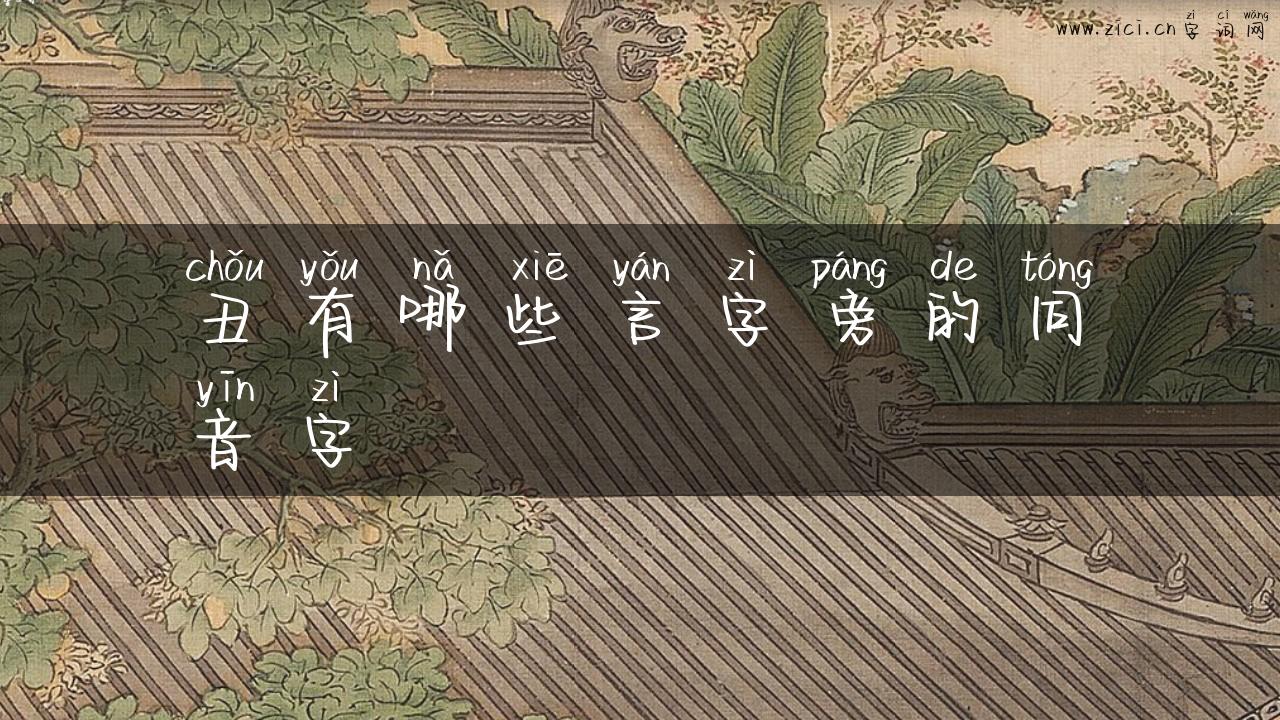 zì cí wǎng
www.zici.cn 字词网
chǒu yǒu nǎ xiē yán zì páng de tóng
丑有哪些言字旁的同
yīn zì
音字